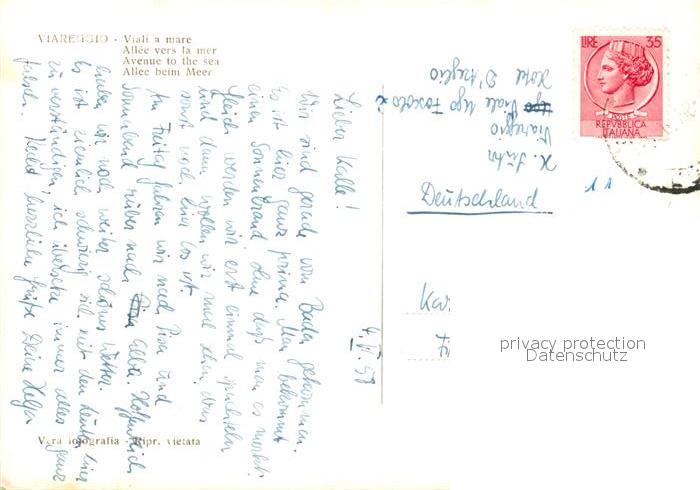 VIAREGGIO - Viali a mare
Allée vers la mer
Avenue to the sea
Allee beim Meer
Lieber Kalle!
Wir sind gerade vom Baden gekommen.
Es ist hier ganz prima. Man bekommt
einen Sonnenbrand ohne daß man es merkt.
Gleich werden wir erst einmal spachteln
und dann wollen wir mal sehen, was
sonst noch hier los ist.
Am Freitag fahren wir nach Pisa und
Sonnabend rüber nach Elba. Hoffentlich
haben wir noch weiter schönes Wetter.
Es ist ziemlich schwierig sich mit den Leuten hier
zu verständigen, ich übersetze immer alles ganz
falsch. Recht herzliche Grüße Deine Helga
4. VI. 58
Vera fotografia - Ripr. vietata
H.
Viareggio
Viale Ugo Foscolo 2
Hotel D'Azeglio
Deutschland
11
Kar
LIRE 35
POSTE
REPVBBLICA
ITALIANA
privacy protection
Datenschutz